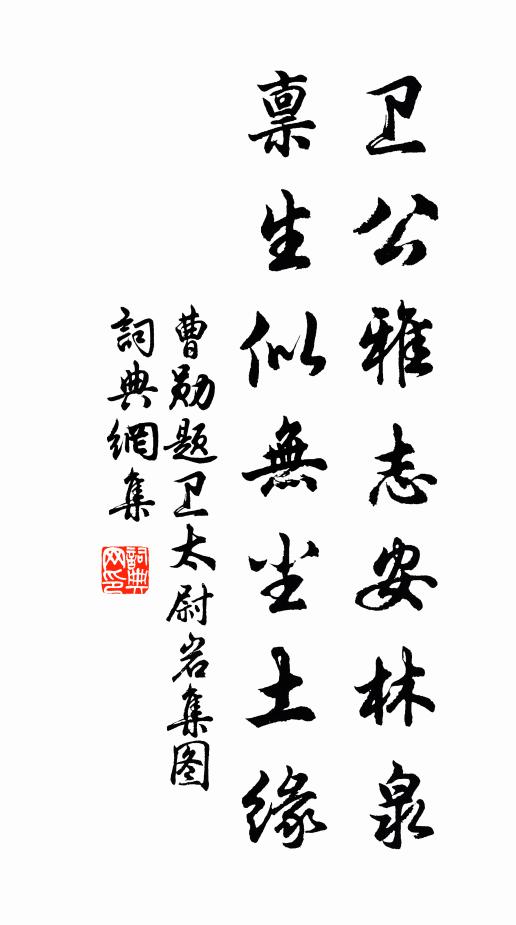 卫公雅志安林泉
禀生似無尘土缘
曹勋题卫太尉岩集图
詞典網集
詞典网印